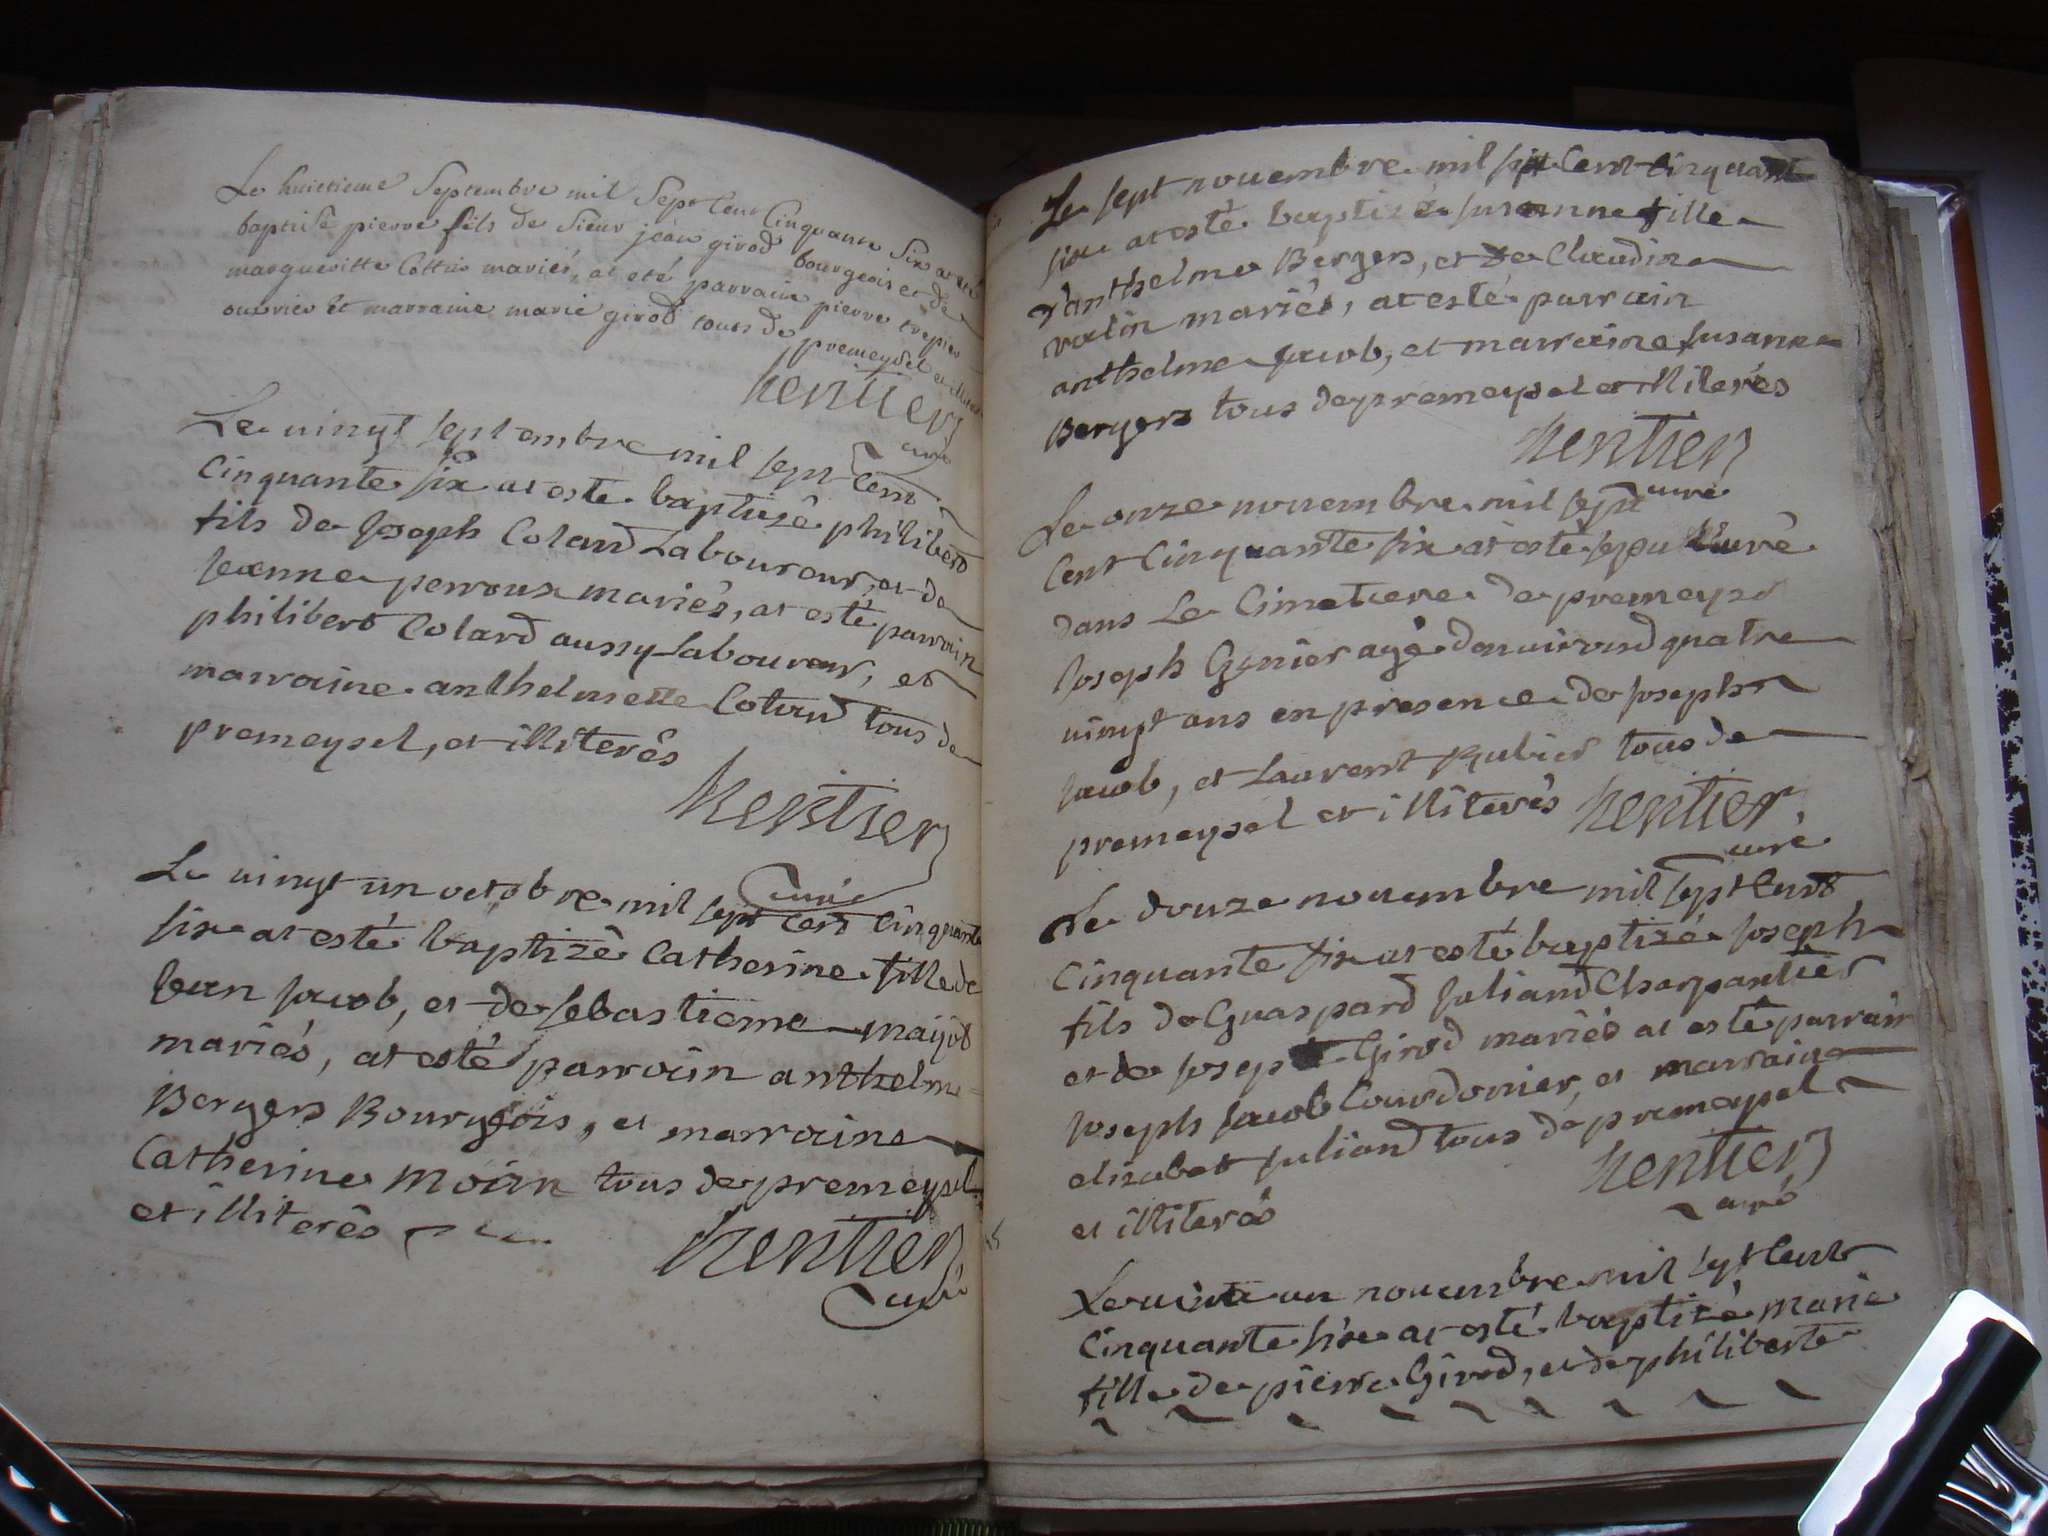 Le huictieme Septembre mil Sept Cent Cinquante Six at eté
baptisé pierre fils de Sieur jean girod bourgeois et de
margueritte Cottin mariés, at eté parrain pierre trepier
ouvrier et marraine marie girod tous de premeysel et
Rentier
curé
Le vingt septembre mil sept Cent
Cinquante six at esté baptizé philibert
fils de Joseph Coland Laboureur, et de
Jeanne perroux mariés, at esté parrain
philibert Colard aussy Laboureur, et
marraine anthelmette tous de
premeysel, et illiterés
Rentier
curé
Le vingt un octobre mil sept Cent Cinquante
six at esté baptizé Catherine fille de
Jean Jacob, et de Sebastienne mayot
mariés, at esté parrain anthelme
Bergers Bourgeois, et marraine
Catherine Moian tous de premeysel
et illiterés
Rentier
Curé
Le sept novembre mil sept Cent Cinquante
six at esté baptizé susanne fille
d'anthelme Bergers, et de Claudine
mariés, at esté parrain
anthelme Jacob, et marraine susanne
Bergers tous de premeysel et illiterés
Rentier
curé
Le onze novembre mil sept
Cent Cinquante six at esté sepulturé
dans Le Cimetiere de premeysel
Joseph Genier agé d'environ quatre
vingt ans en presence de Joseph
Jacob, et Laurent Rubier tous de
premeysel et illiterés Rentier
curé
Le douze novembre mil sept Cent
Cinquante six at esté baptizé Joseph
fils de Guaspard Juliand Charpantier
et de Girod mariés at esté parrain
Joseph Jacob Courdonier, et marraine
elizabet Juliand tous de premeysel
et illiterés
Rentier
curé
Le vint un novembre mil sept Cent
Cinquante six at esté baptizé Marie
fille de pierre Girod, et de philiberte